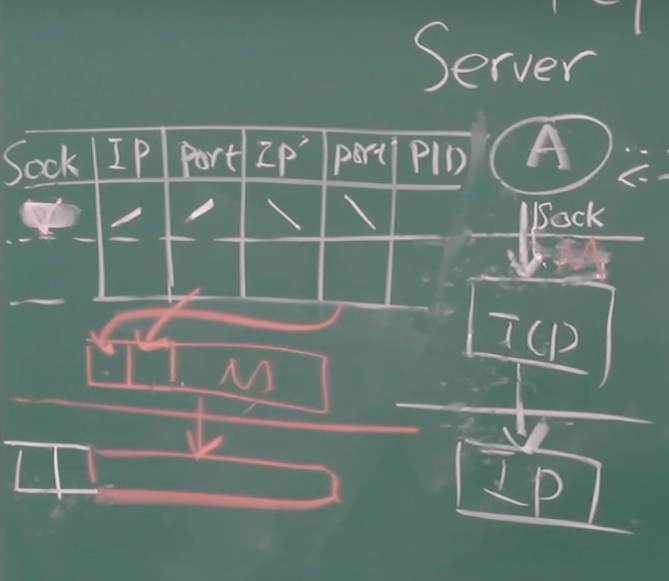 Server
Sock IP port IP' port' PID
A
Sock
M
TCP
M
IP